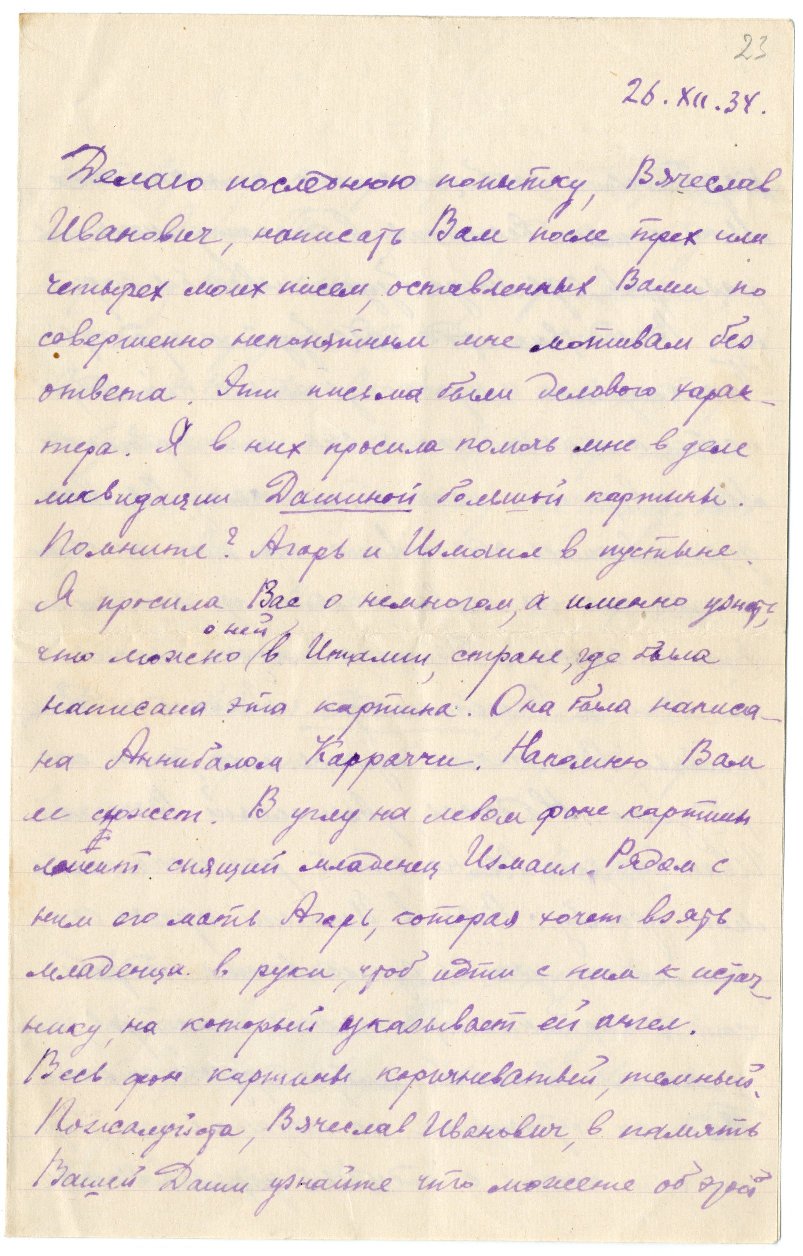 23
26.XII.34.
Делаю последнюю попытку, Вячеслав
Иванович, написать Вам после трех или
четырех моих писем, оставленных Вами по
совершенно непонятным мне мотивам без
ответа. Эти письма были делового харак-
тера. Я в них просила помочь мне в деле
ликвидации Дашиной большой картины.
Помните? Агарь и Измаил в пустыне.
Я просила Вас о немногом, а именно узнать,
о ней
что можно в Италии, стране, где была
написана эта картина. Она была написа-
на Аннибалом Карраччи. Напомню Вам
ее сюжет. В углу на левом фоне картины
лежит спящий младенец Измаил. Рядом с
ним его мать Агарь, которая хочет взять
младенца в руки, чтоб идти с ним к источ-
нику, на который указывает ей ангел.
Весь фон картины коричневатый, темный.
Пожалуйста, Вячеслав Иванович, в память
Вашей Даши узнайте что можете об этой